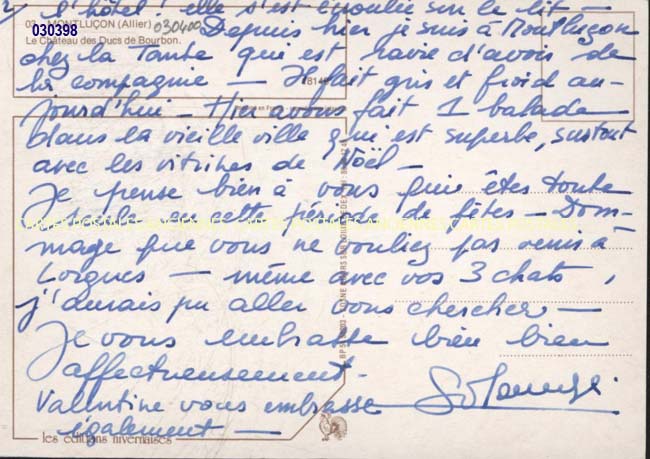 2) l'hôtel! elle s'est écroulée sur le lit -
030398
03 - MONTLUÇON (Allier) 030400
Le Château des Ducs de Bourbon.
Depuis hier je suis à Montluçon
chez la Tante qui est ravie d'avoir de
la compagnie - Il fait gris et froid au-
jourd'hui - Hier avons fait 1 balade
dans la vieille ville qui est superbe, surtout
avec les vitrines de Noël -
Je pense bien à vous qui êtes toute
seule en cette période de fêtes - Dom-
mage que vous ne vouliez pas venir à
Lorgues - même avec vos 3 chats,
j'aurais pu aller vous chercher -
Je vous embrasse bien bien
affectueusement -
Solange
Valentine vous embrasse
également -
les éditions nivernaises